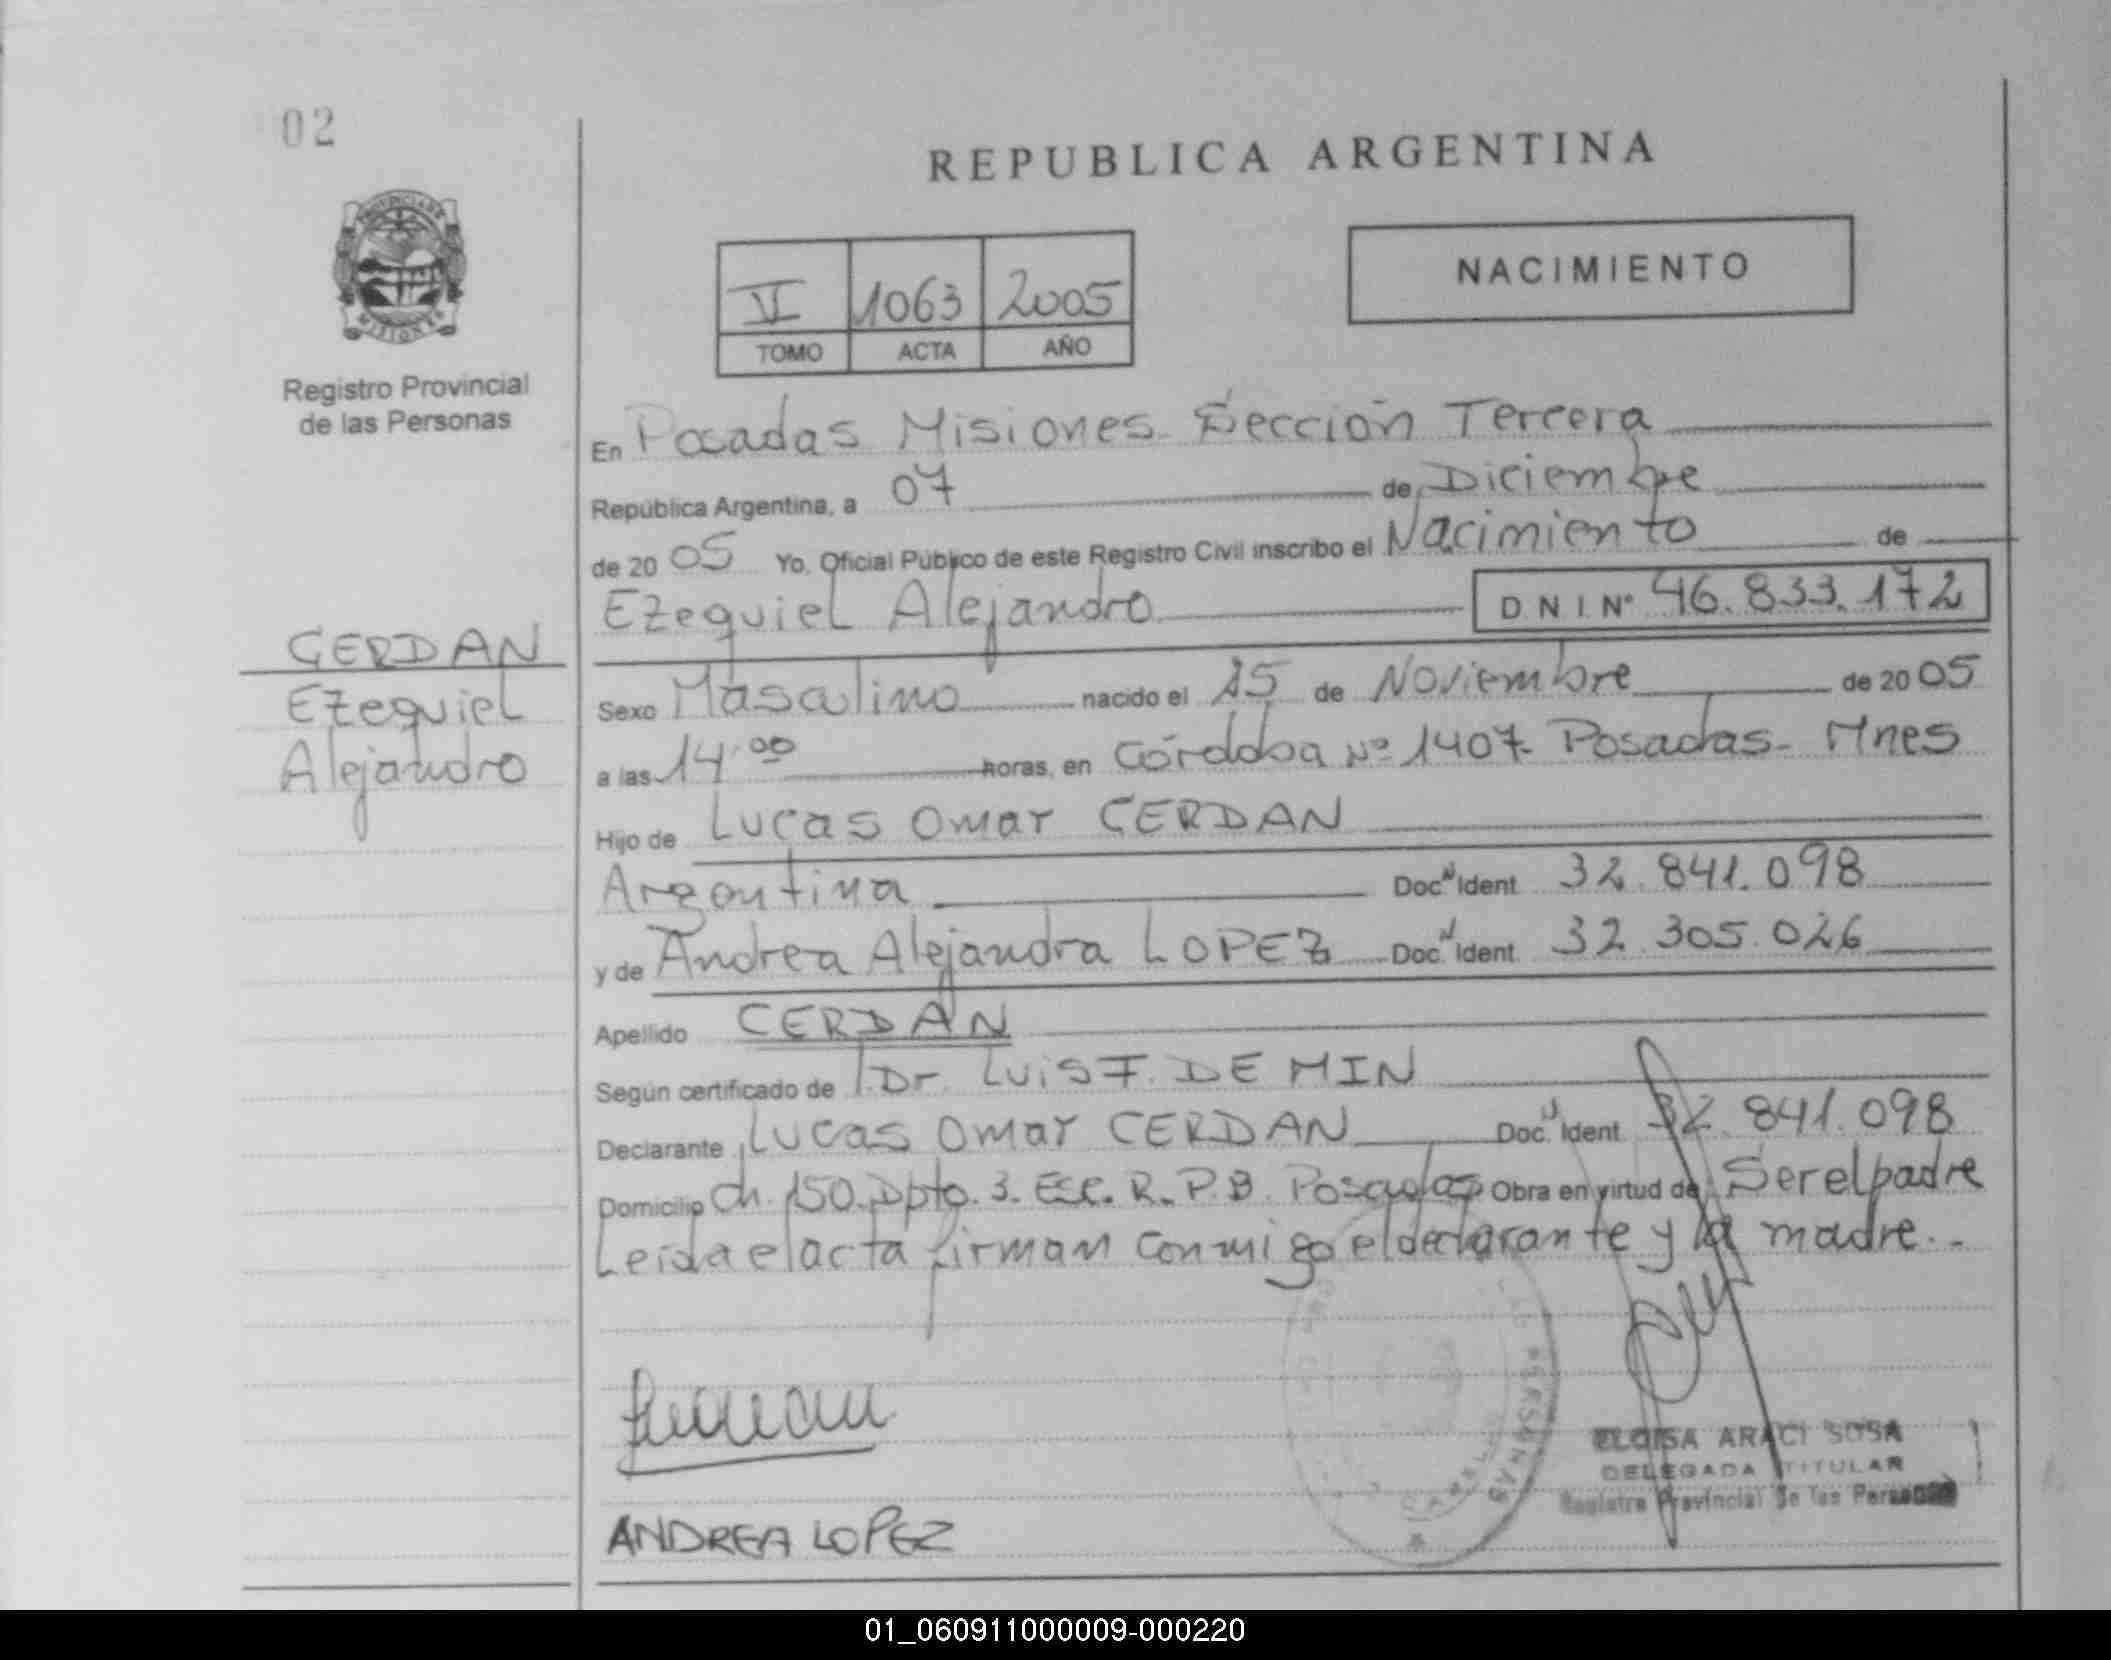 02
PROVINCIA DE
MISIONES
Registro Provincial
de las Personas
REPUBLICA ARGENTINA
VI 1063 2005
TOMO ACTA AÑO
NACIMIENTO
En Posadas Misiones Sección Tercera
República Argentina, a 07 de Diciembre
de 20 05 Yo, Oficial Público de este Registro Civil inscribo el Nacimiento de
Ezequiel Alejandro D N I. Nº 46.833.172
CERDAN
Ezequiel
Alejandro
Sexo Masculino nacido el 25 de Noviembre de 20 05
a las 14.00 horas, en Córdoba Nº 1407. Posadas - Mnes
Hijo de Lucas Omar CERDAN
Argentina Doc. Ident 32.841.098
y de Andrea Alejandra LOPEZ Doc. Ident 32.305.026
Apellido CERDAN
Según certificado de Dr. Luis F. DE MIN
Declarante Lucas Omar CERDAN Doc. Ident 32.841.098
Domicilio Ch. 150. Dpto. 3. Esc. R. P.B. Posadas Obra en virtud de Ser el padre
Leida el acta firman conmigo el declarante y la madre..-
ANDREA LOPEZ
PERSONAS
ELOISA ARACI SOSA
DELEGADA TITULAR
Registro Provincial de las Personas
01_060911000009-000220